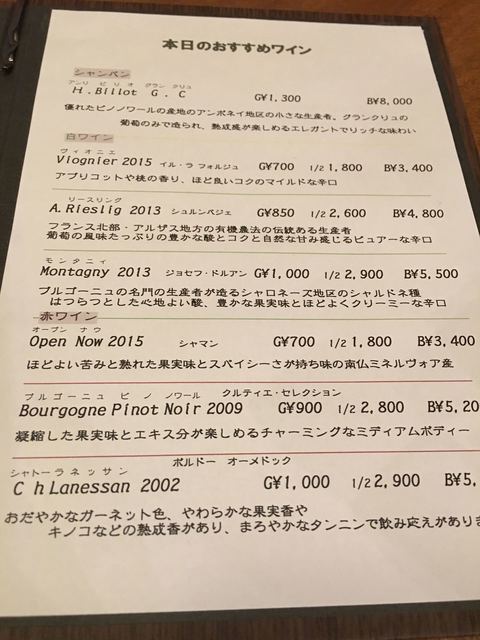 本日のおすすめワイン
シャンパン
アンリ ビリオ グラン クリュ
H.Billot G.C G¥1,300 B¥8,000
優れたピノノワールの産地のアンボネイ地区の小さな生産者。グランクリュの
葡萄のみで造られ、熟成感が楽しめるエレガントでリッチな味わい
白ワイン
ヴィオニエ
Viognier 2015 イル・ラ フォルジュ G¥700 1/2 1,800 B¥3,400
アプリコットや桃の香り、ほど良いコクのマイルドな辛口
リースリング
A.Rieslig 2013 シュルンベジェ G¥850 1/2 2,600 B¥4,800
フランス北部・アルザス地方の有機農法の伝統ある生産者
葡萄の風味たっぷりの豊かな酸とコクと自然な甘み感じるピュアーな辛口
モンタニィ
Montagny 2013 ジョセフ・ドルアン G¥1,000 1/2 2,900 B¥5,500
ブルゴーニュの名門の生産者が造るシャロネーズ地区のシャルドネ種
はつらつとした心地よい酸、豊かな果実味とほどよくクリーミーな辛口
赤ワイン
オープン ナウ
Open Now 2015 シャマン G¥700 1/2 1,800 B¥3,400
ほどよい苦みと熟れた果実味とスパイシーさが持ち味の南仏ミネルヴォア産
ブルゴーニュ ピノ ノワール クルティエ・セレクション
Bourgogne Pinot Noir 2009 G¥900 1/2 2,800 B¥5,20
凝縮した果実味とエキス分が楽しめるチャーミングなミディアムボディー
シャトーラネッサン ボルドー オーメドック
C h Lanessan 2002 G¥1,000 1/2 2,900 B¥5,
おだやかなガーネット色、やわらかな果実香や
キノコなどの熟成香があり、まろやかなタンニンで飲み応えがありま